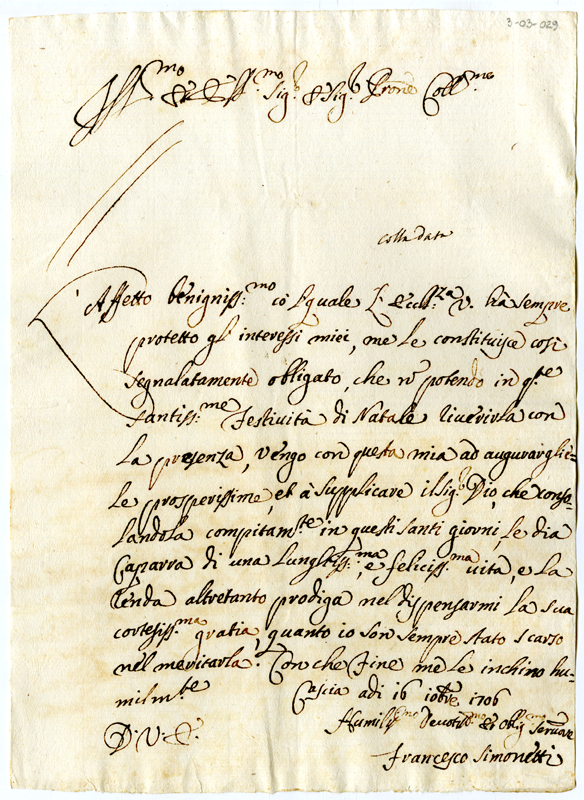 3-03-029
Ill.mo & Ecc.mo Sig.r & Sig.r Prone Coll.mo
colla data
L'Affetto benigniss.mo cō l'quale L'Eccll.za V. hà sempre
protetto gl'interessi miei, me le constituisce così
segnalatamente obligato, che nō potendo in q.te
santiss.me Festività di Natale riverirla con
la presenza, vengo con questa mia ad augurarglie-
le prosperissime, et à supplicare il sig.r Dio, che conso-
landola compitam.te in questi santi giorni, le dia
Caparra di una lunghiss.ma, e feliciss.ma vita, e la
renda altretanto prodiga nel dispensarmi la sua
cortesiss.ma gratia quanto io son sempre stato scarso
nel meritarla. Con che fine me le inchino hu-
milm.te
Cascia adi 16 xbre 1706
D. V. E.
Humiliss.mo Devotiss.mo et Oblig.mo Servore
Francesco Simonetti